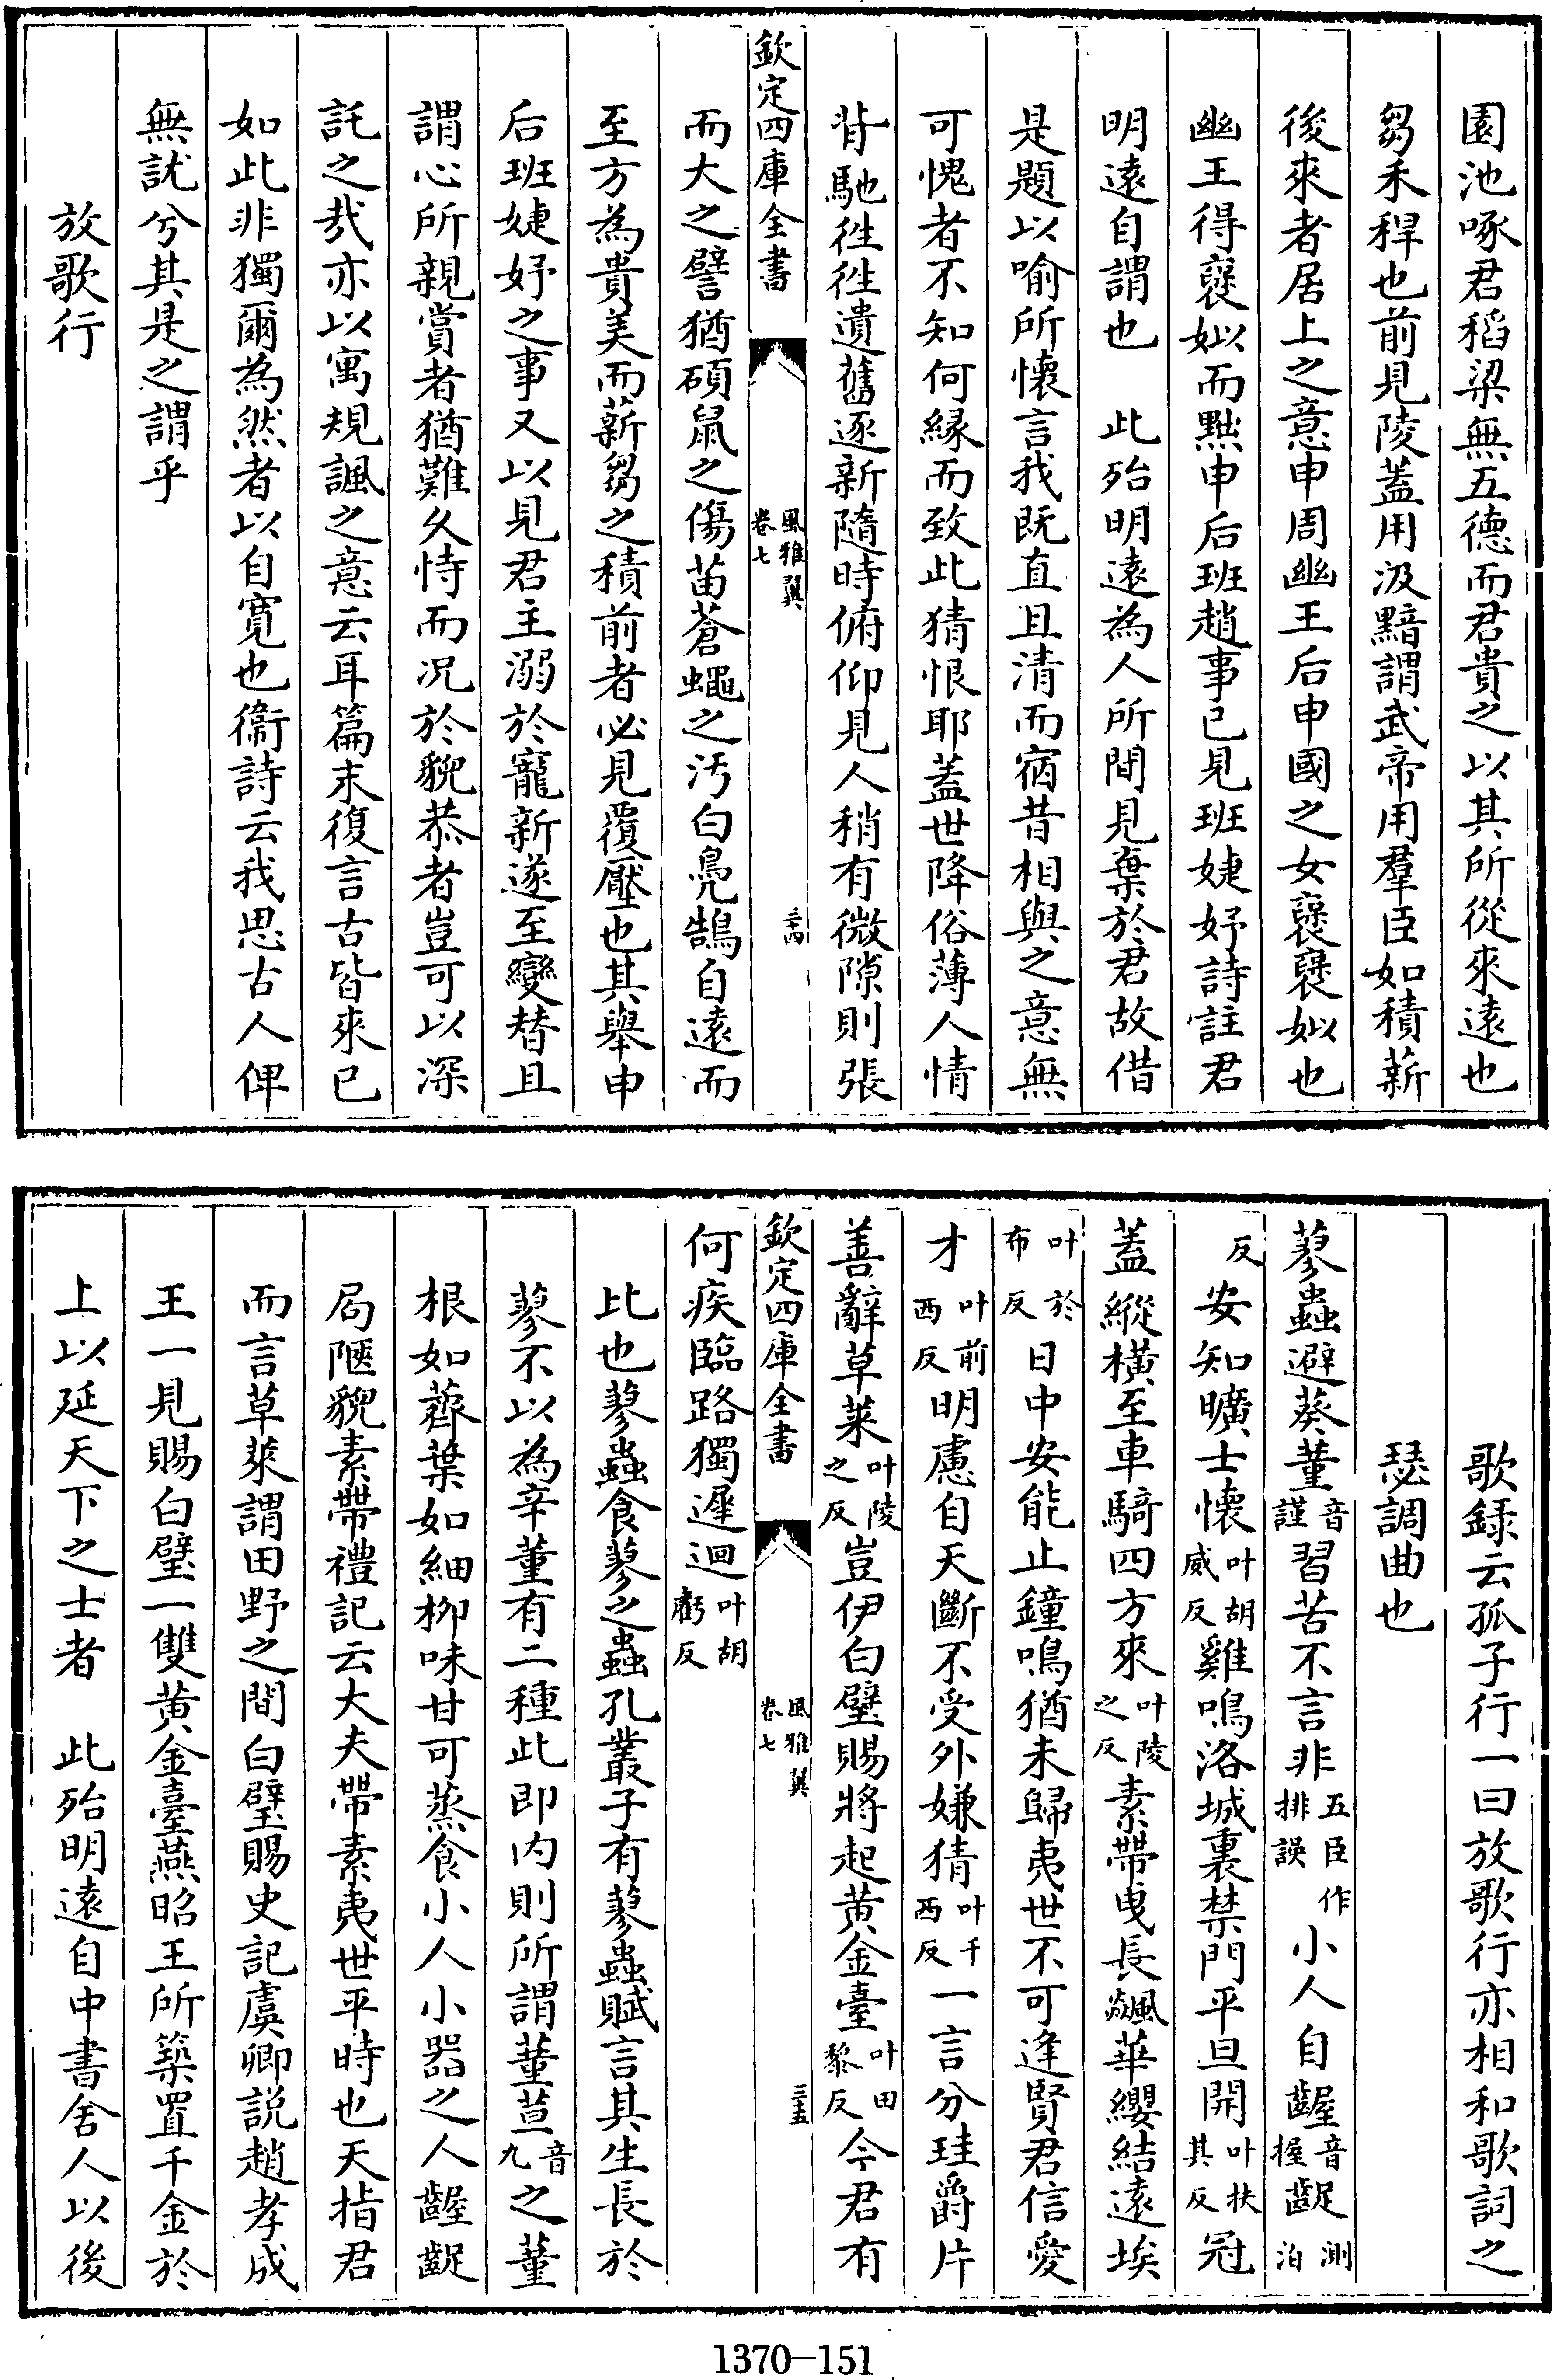 園池啄君稻梁無五德而君貴之以其所從來遠也
芻禾稈也前見陵蓋用汲黯謂武帝用羣臣如積薪
後來者居上之意申周幽王后申國之女襃襃姒也
幽王得襃姒而黜申后班趙事已見班婕妤詩註君
明遠自謂也　此殆明遠為人所間見棄於君故借
是題以喻所懷言我既直且清而宿昔相與之意無
可愧者不知何縁而致此猜恨耶蓋世降俗薄人情
背馳徃徃遺舊逐新隨時俯仰見人稍有微隙則張
欽定四庫全書　風雅翼卷七　三十四
而大之譬猶碩鼠之傷苗蒼蠅之汚白鳧鵠自遠而
至方為貴美而薪芻之積前者必見覆壓也其舉申
后班婕妤之事又以見君主溺於寵新遂至變替且
謂心所親賞者猶難久恃而况於貌恭者豈可以深
託之哉亦以寓規諷之意云耳篇末復言古皆來已
如此非獨爾為然者以自寛也衞詩云我思古人俾
無訧兮其是之謂乎
放歌行
歌録云孤子行一曰放歌行亦相和歌詞之
瑟調曲也
蓼蟲避葵菫音謹習苦不言非五臣作排誤小人自齷音握齪測泊
反安知曠士懷叶胡威反雞鳴洛城裏禁門平旦開叶扶其反冠
蓋縱橫至車騎四方來叶陵之反素帶曵長飈華纓結遠埃
叶於布反日中安能止鐘鳴猶未歸夷世不可逢賢君信愛
才叶前西反明慮自天斷不受外嫌猜叶千西反一言分珪爵片
善辭草萊叶陵之反豈伊白璧賜將起黄金臺叶田黎反今君有
欽定四庫全書　風雅翼卷七　三十五
何疾臨路獨遲迴叶胡虧反
比也蓼蟲食蓼之蟲孔叢子有蓼蟲賦言其生長於
蓼不以為辛菫有二種此即内則所謂菫荁音九之菫
根如薺葉如細栁味甘可蒸食小人小器之人齷齪
局陋貌素帶禮記云大夫帶素夷世平時也天指君
而言草萊謂田野之間白璧賜史記虞卿説趙孝成
王一見賜白璧一雙黄金臺燕昭王所築置千金於
上以延天下之士者　此殆明遠自中書舍人以後
1370—151